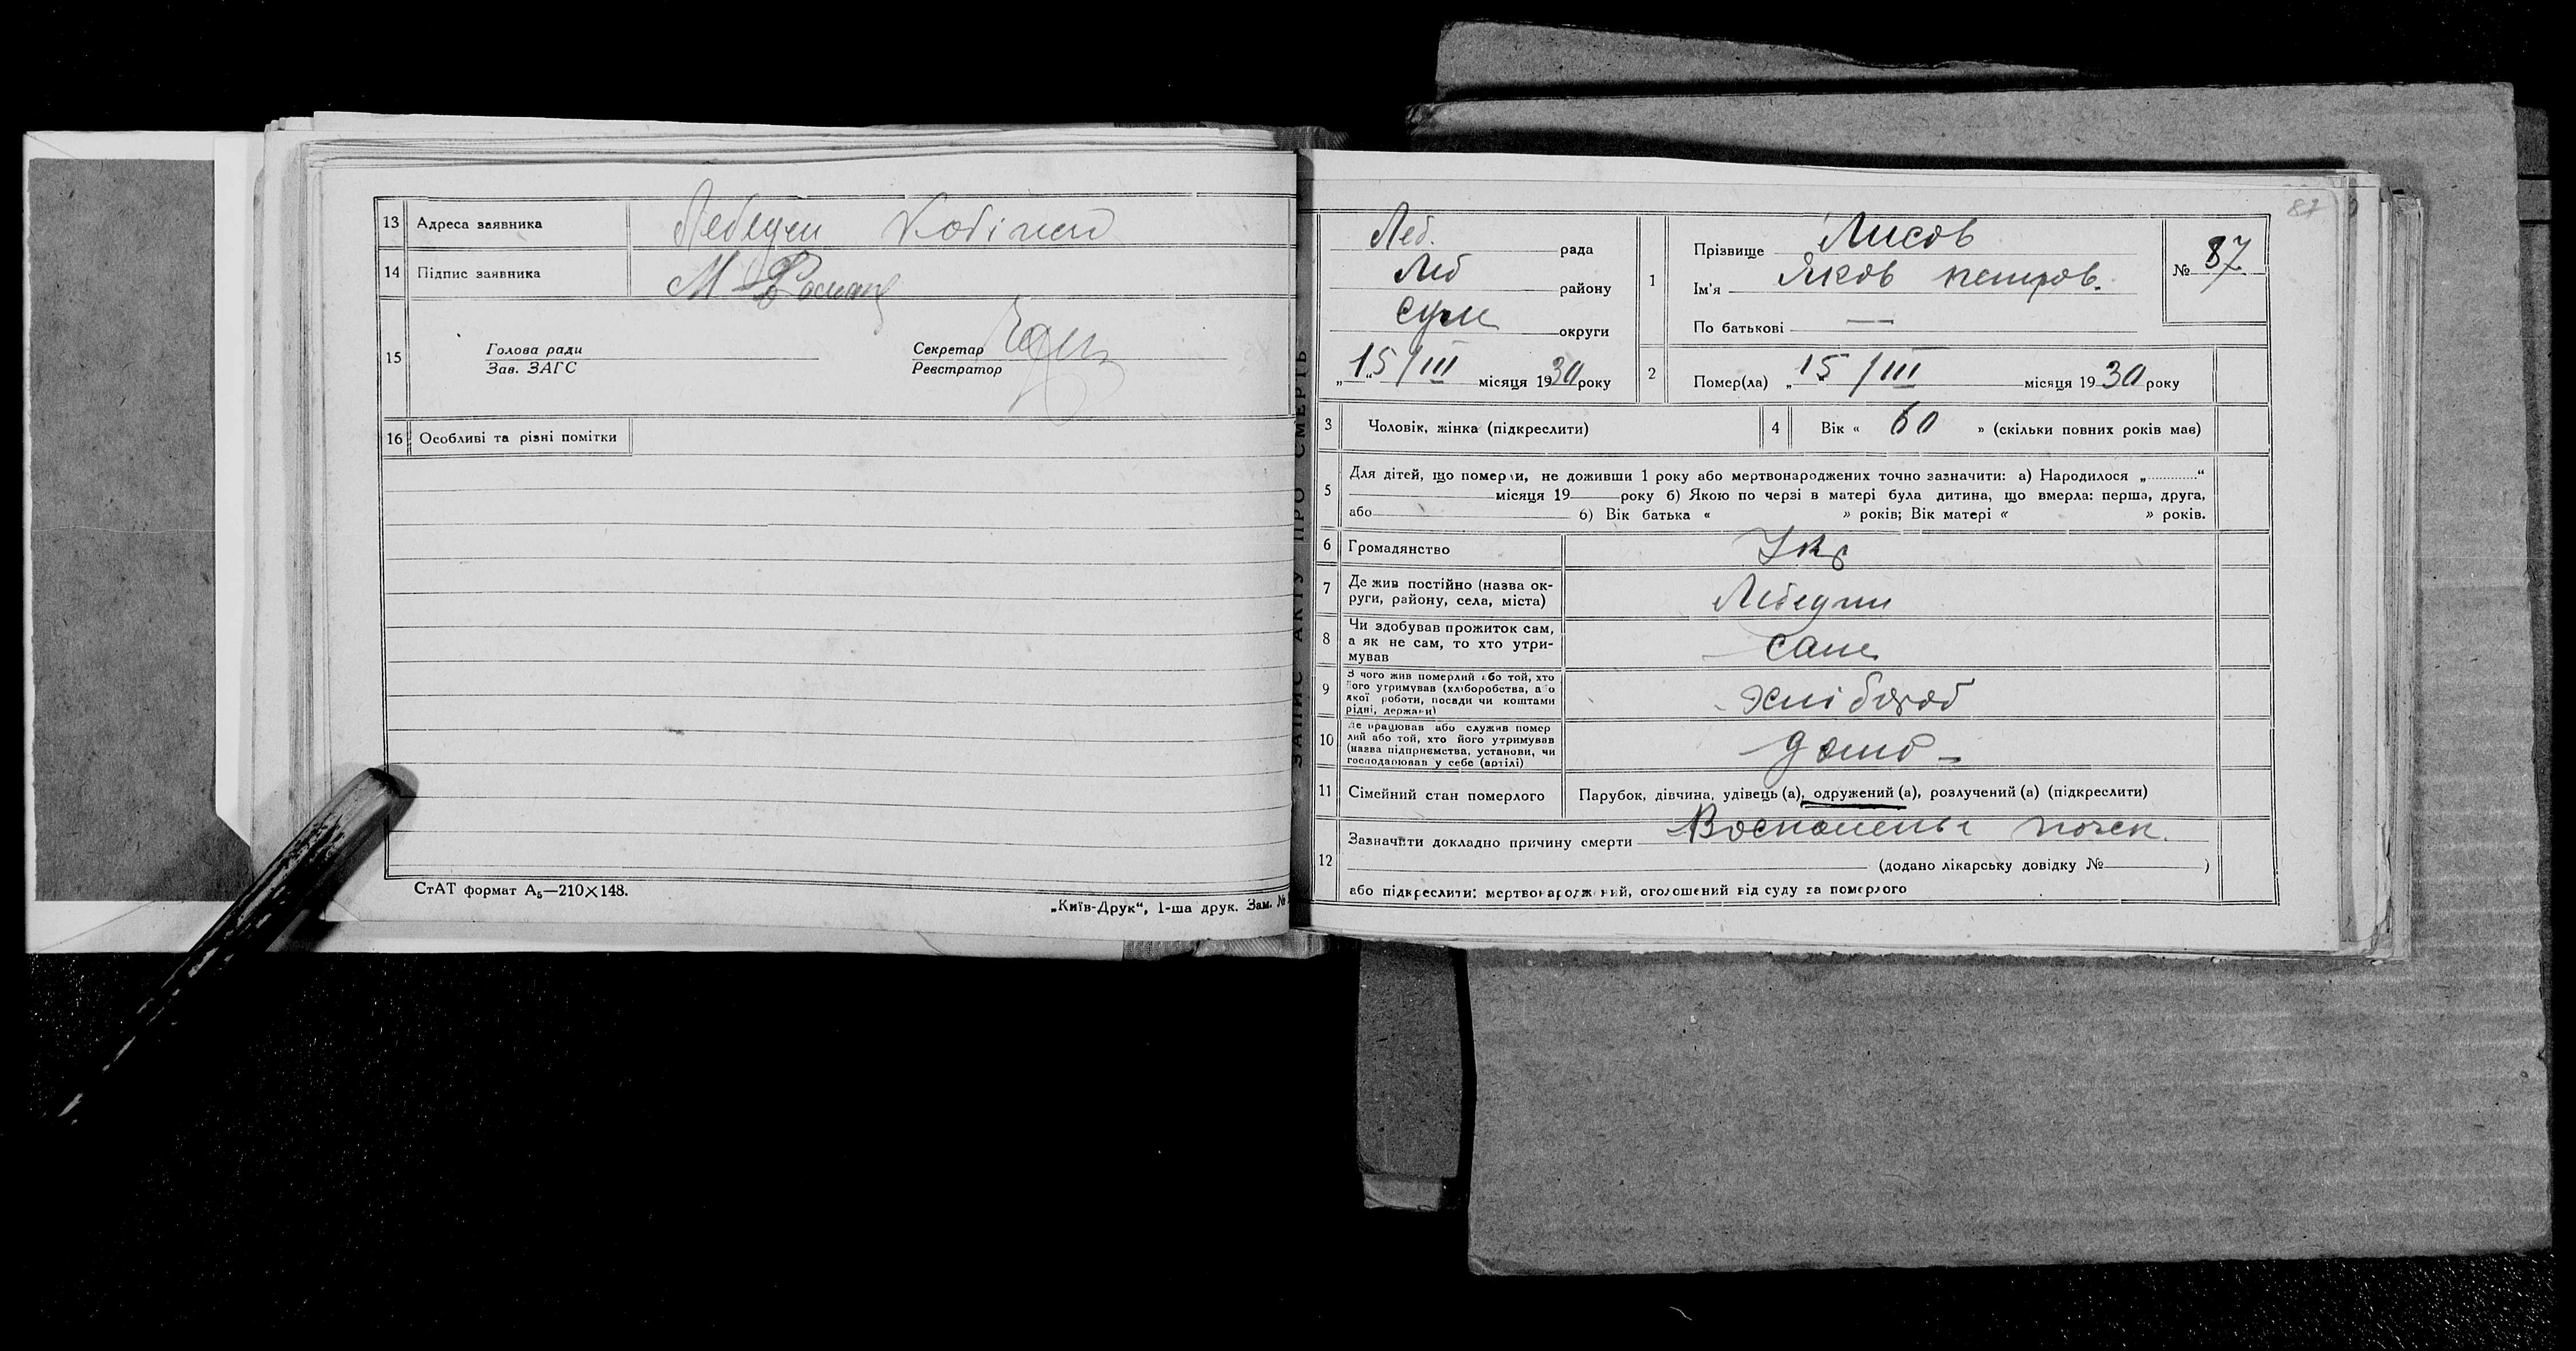 13 Адреса заявника Лебедин
14 Підпис заявника М
15 Голова ради
Зав. ЗАГС
Секретар
Реєстратор
16 Особливі та різні помітки
СтАТ формат А₅—210×148.
„Київ-Друк“, 1-ша друк. Зам. №
ЗАПИС АКТУ ПРО СМЕРТЬ
87
Леб. рада
Леб району
Сум округи
„15“/III місяця 1930 року
1 Прізвище Лисов
Ім'я Яков петров.
По батькові —
№ 87
2 Помер(ла) „15/III місяця 1930 року
3 Чоловік, жінка (підкреслити)
4 Вік « 60 » (скільки повних років має)
5 Для дітей, що померли, не доживши 1 року або мертвонароджених точно зазначити: а) Народилося „............“
місяця 19 року б) Якою по черзі в матері була дитина, що вмерла: перша, друга,
або б) Вік батька « » років; Вік матері « » років.
6 Громадянство Укр
7 Де жив постійно (назва ок-
руги, району, села, міста) Лебедин
8 Чи здобував прожиток сам,
а як не сам, то хто утри-
мував сам
9 З чого жив померлий або той, хто
його утримував (хліборобства, або
якої роботи, посади чи коштами
рідні, держави) хлібороб
10 Де працював або служив помер
лий або той, хто його утримував
(назва підприємства, установи, чи
господарював у себе (артілі) дома
11 Сімейний стан померлого Парубок, дівчина, удівець (а), одружений (а), розлучений (а) (підкреслити)
12 Зазначити докладно причину смерти Воспаление почек.
(додано лікарську довідку № )
або підкреслити: мертвонароджений, оголошений від суду за померлого